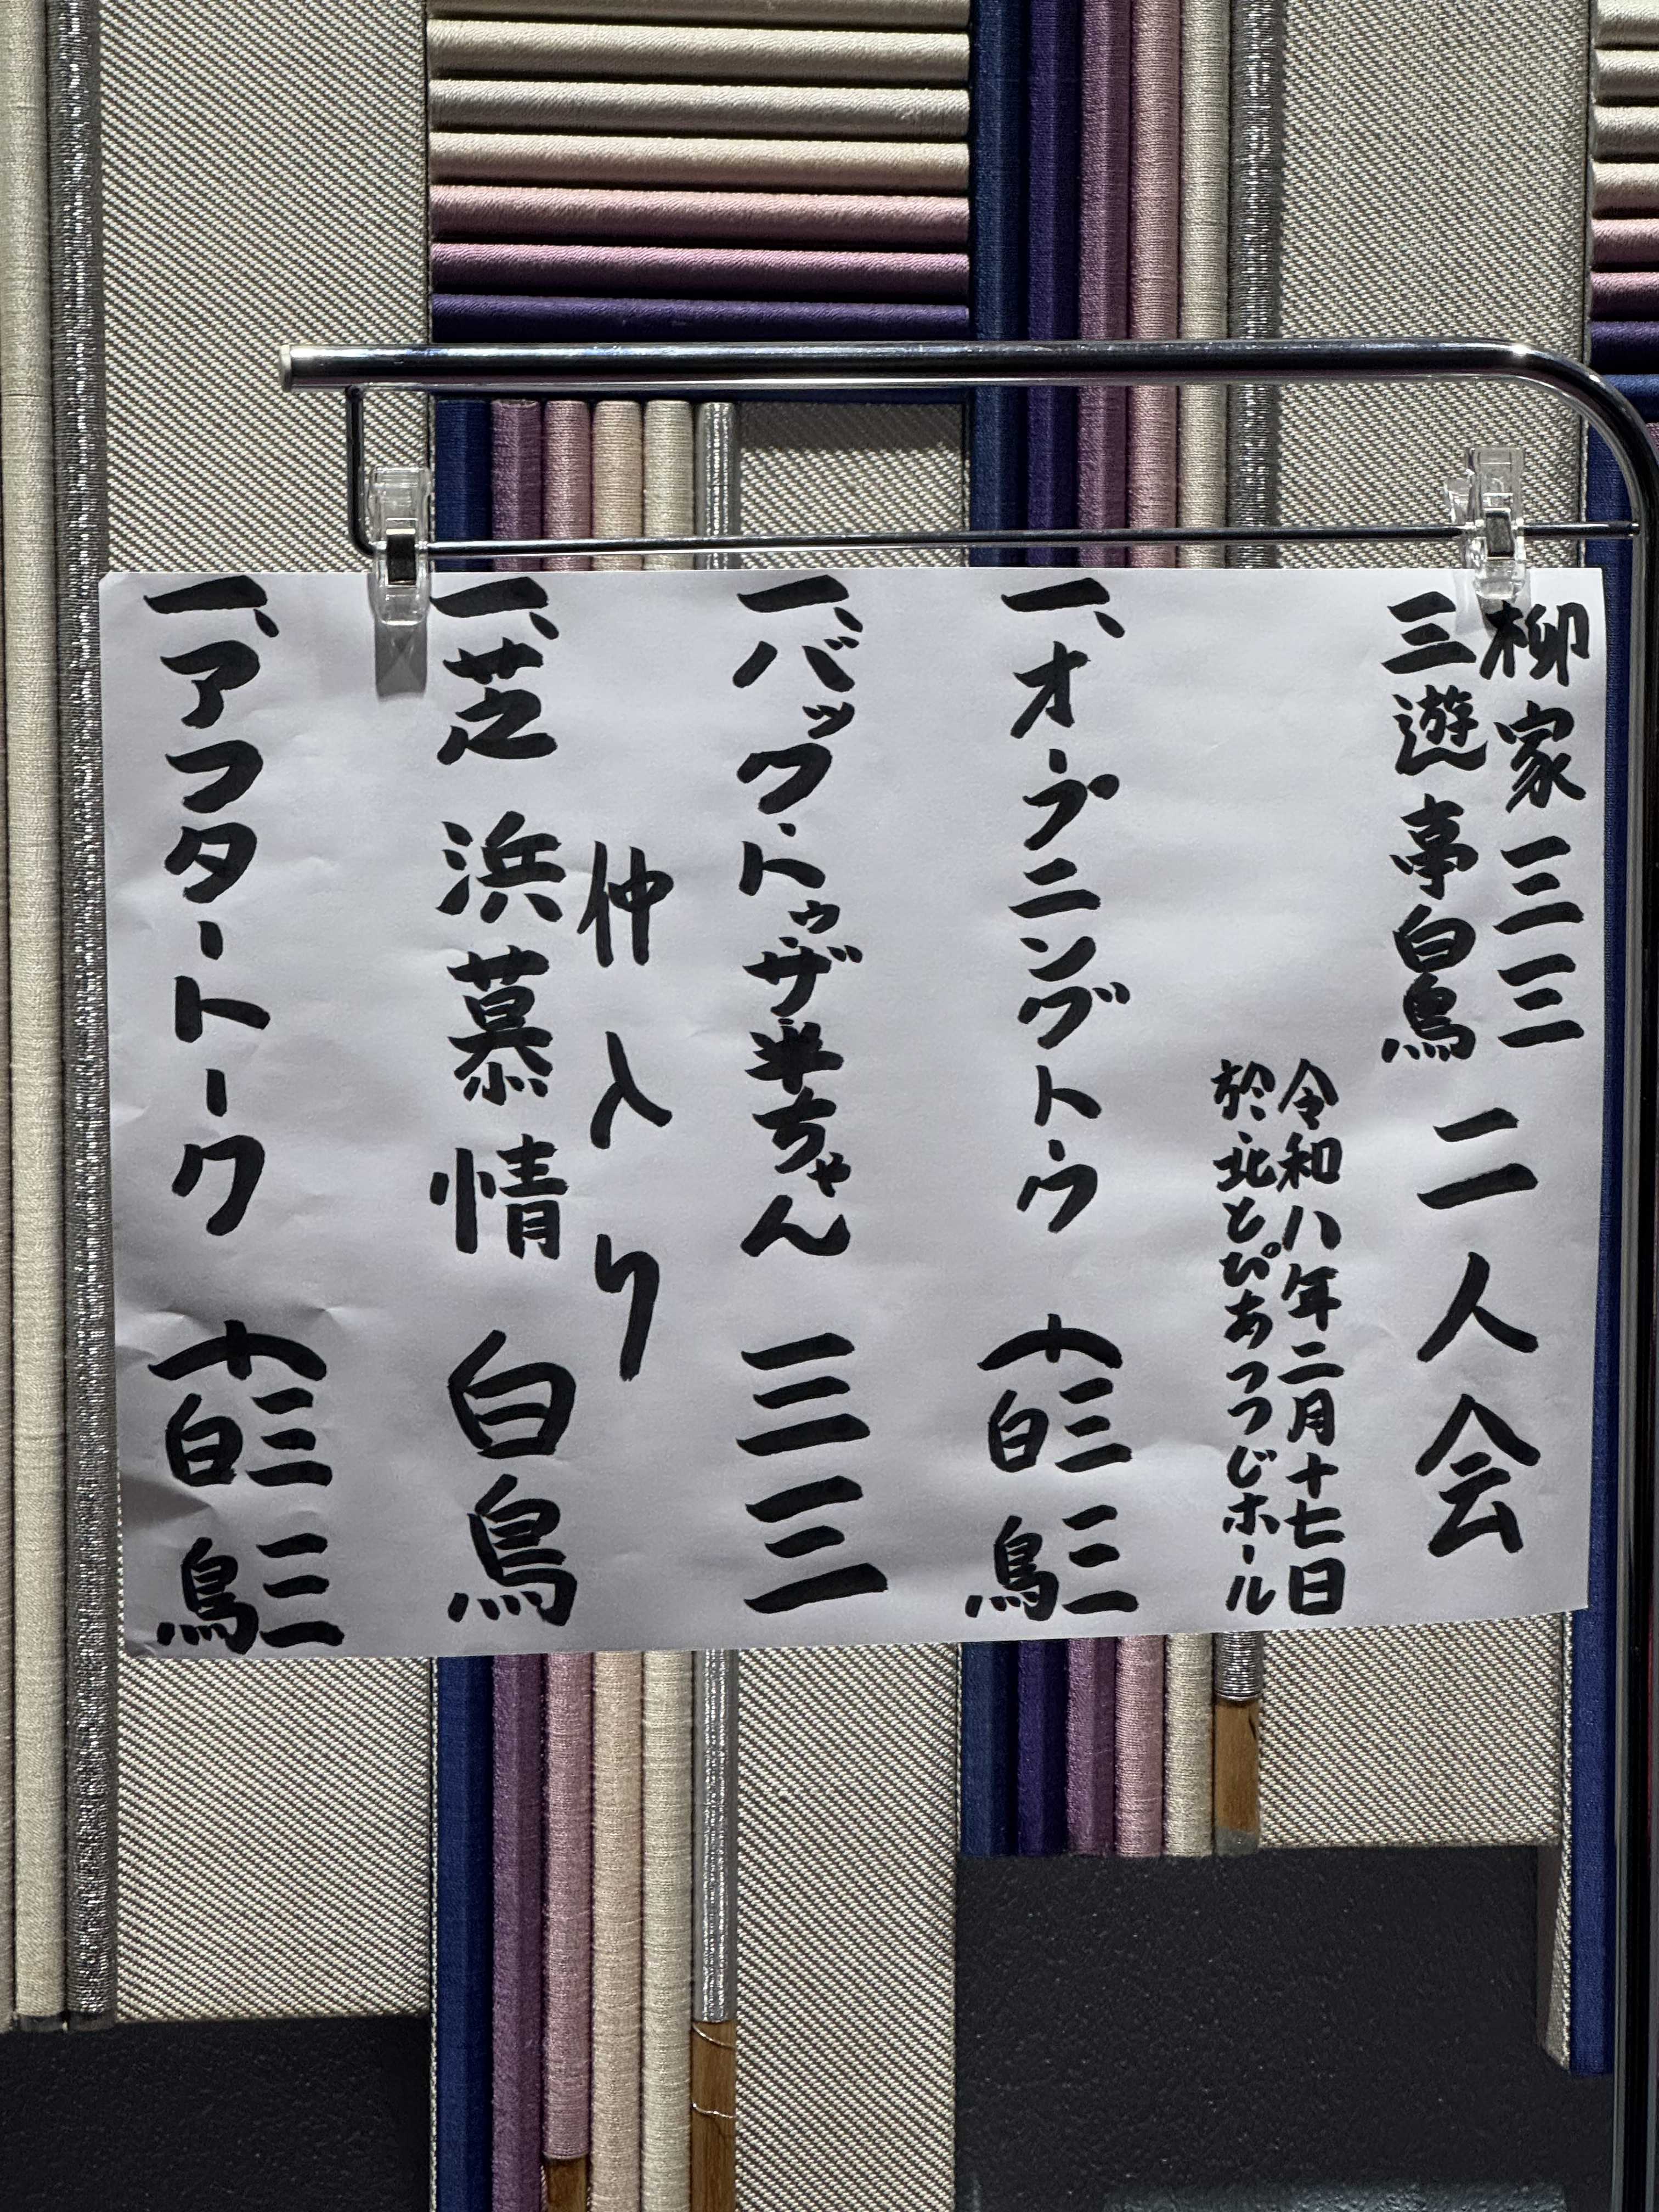 柳家三三
三遊亭白鳥
二人会
令和八年二月十七日
於 北とぴあつつじホール
一、オープニングトウク 三三 白鳥
一、バック・トゥ・ザ・半ちゃん 三三
仲入り
一、芝浜慕情 白鳥
一、アフタートーク 三三 白鳥